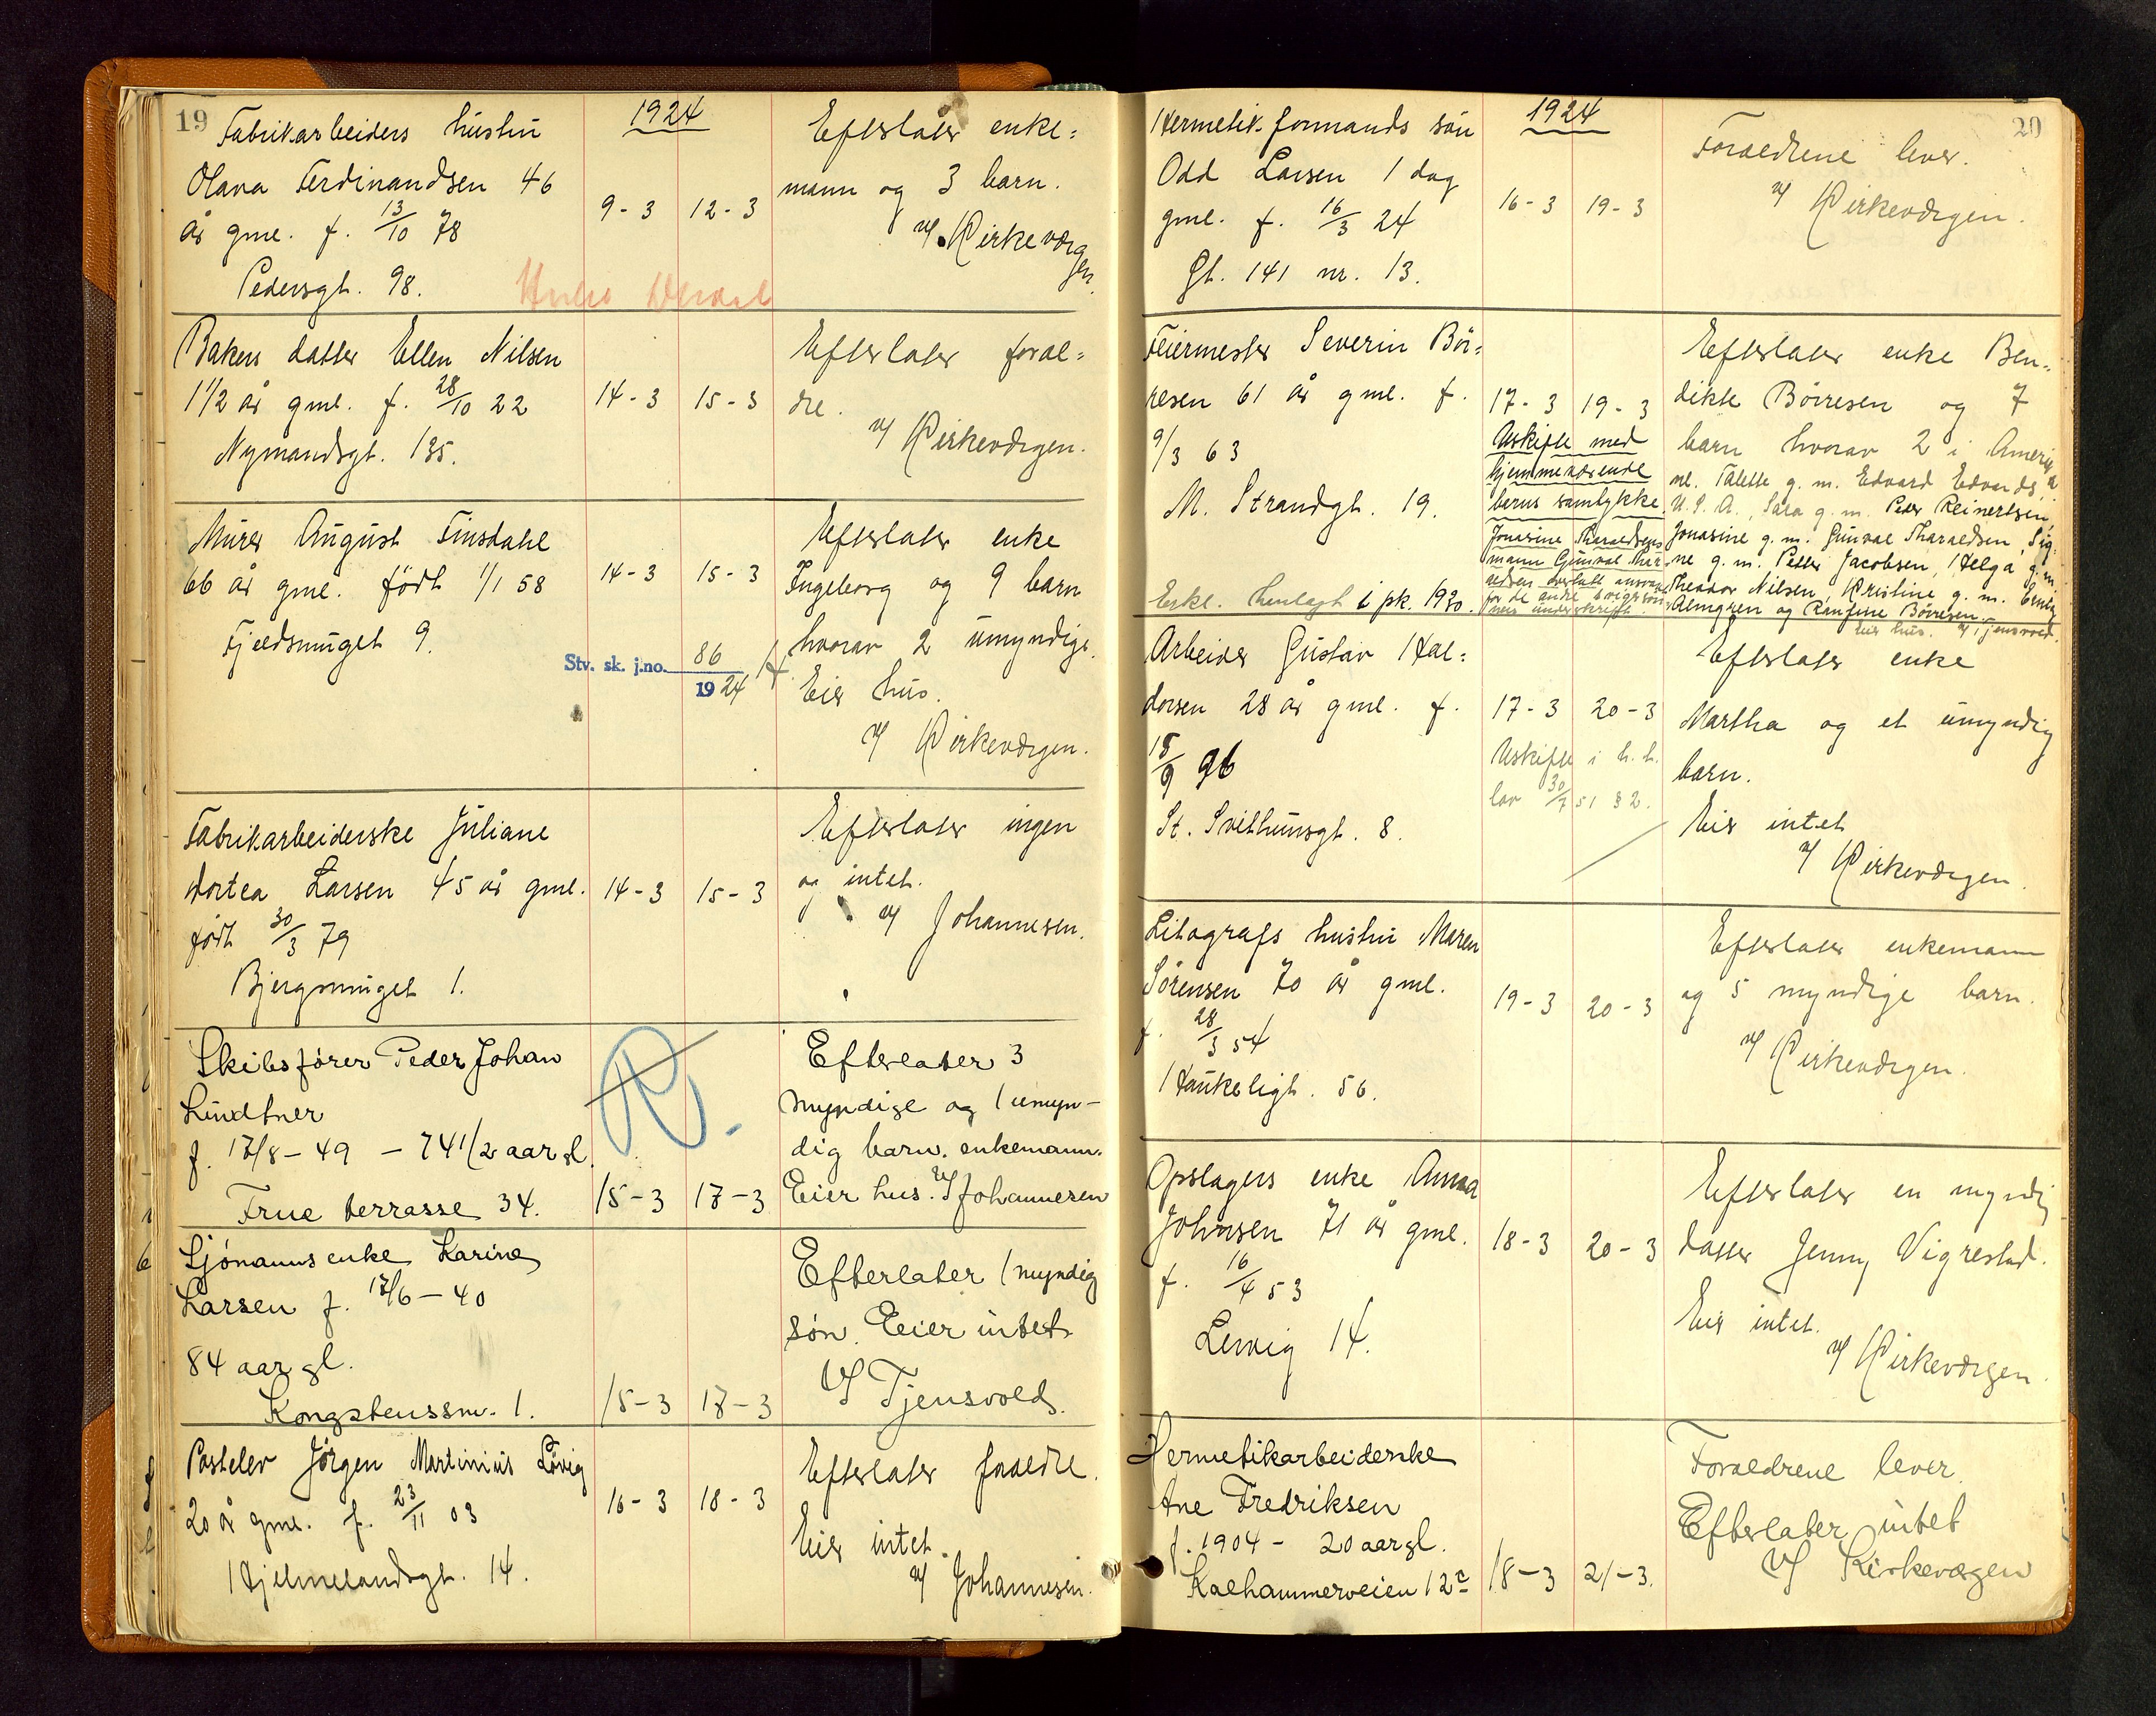 19
1924
Fabrikarbeiders hustru
Olava Ferdinandsen 46
år gml. f. 13/10 78
Pedersgt. 98.
9-3 12-3
Efterlater enke=
mann og 3 barn.
v/ Kirkeværgen.
Bakers datter Ellen Nilsen
1 1/2 år gml. f. 28/10 22
Nymandsgt. 135.
14-3 15-3
Efterlater foræl=
dre.
v/ Kirkeværgen.
Murer August Tinsdahl
66 år gml. født 1/1 58
Fjeldsmuget 9.
14-3 15-3
Stv. sk. j.no. 86
1924
Efterlater enke
Ingeborg og 9 barn
hvorav 2 umyndige.
Eier hus.
v/ Kirkeværgen.
Fabrikarbeiderske Juliane
Dortea Larsen 45 år gml.
født 30/3 79
Bjergsmuget 1.
14-3 15-3
Efterlater ingen
og intet.
v/ Johannesen.
Skibsfører Peder Johan
Lindtner
f. 17/8-49 - 74 1/2 aar gl.
Frue terrasse 34.
R.
15-3 17-3
Efterlater 3
myndige og 1 umyn-
dig barn. enkemann.
Eier hus. v/ Johannesen
Sjömanns enke Karine
Larsen f. 17/6-40
84 aar gl.
Kongstenssm. 1.
15-3 17-3
Efterlater 1 myndig
søn. Eier intet.
v/ Tjensvold.
Postelev Jörgen Martinius Lövig
20 år gml. f. 23/11 03
Hjelmelandsgt. 14.
16-3 18-3
Efterlater forældre.
Eier intet.
v/ Johannesen.
20
1924
Hermetik.formands søn
Odd Larsen 1 dag
gml. f. 16/3 24
Gt. 141 nr. 13.
16-3 19-3
Forældrene lever.
v/ Kirkeværgen.
Feiermester Severin Bör=
resen 61 år gml. f.
9/3 63
N. Strandgt. 19.
Erkl. henlagt i pk. 1920.
17-3 19-3
Uskifte med
hjemmeværende
barns samtykke.
Jonasine Tharaldsens
mann Gunval Thar-
aldsen
Efterlater enke Ben-
dikte Börresen og 7
barn hvorav 2 i Amerika
nl. Talette g. m. Edvard Edvards,
U. S. A., Sara g. m. Peder Reinertsen,
Jonasine g. m. Gunval Tharaldsen, Sig-
ne g. m. Petter Jacobsen, Helga g. m.
Theodor Nilsen, Kristine g. m.
Almgren og Ranfine Börresen.
Eier hus. v/ Tjensvold.
Arbeider Gustav Hal=
dorsen 28 år gml. f.
15/9 96
St. Svithunsgt. 8.
17-3 20-3
Uskifte i h. t.
lov 30/7 51 § 2.
Efterlater enke
Martha og et umyndig
barn.
Eier intet
v/ Kirkeværgen.
Litografs hustru Maren
Sörensen 70 år gml.
f. 28/3 54
Haukeligt. 56.
19-3 20-3
Efterlater enkemann
og 5 myndige barn.
v/ Kirkeværgen.
Opslagers enke Anna
Johnsen 71 år gml.
f. 16/4 53
Lervig 14.
18-3 20-3
Efterlater en myndig
datter Jenny Vigrestad.
Eier intet.
v/ Kirkeværgen.
Hermetikarbeiderske
Ane Fredriksen
f. 1904 - 20 aar gl.
Kalhammerveien 12a
18-3 21-3.
Forældrene lever.
Efterlater intet
v/ Kirkevægen